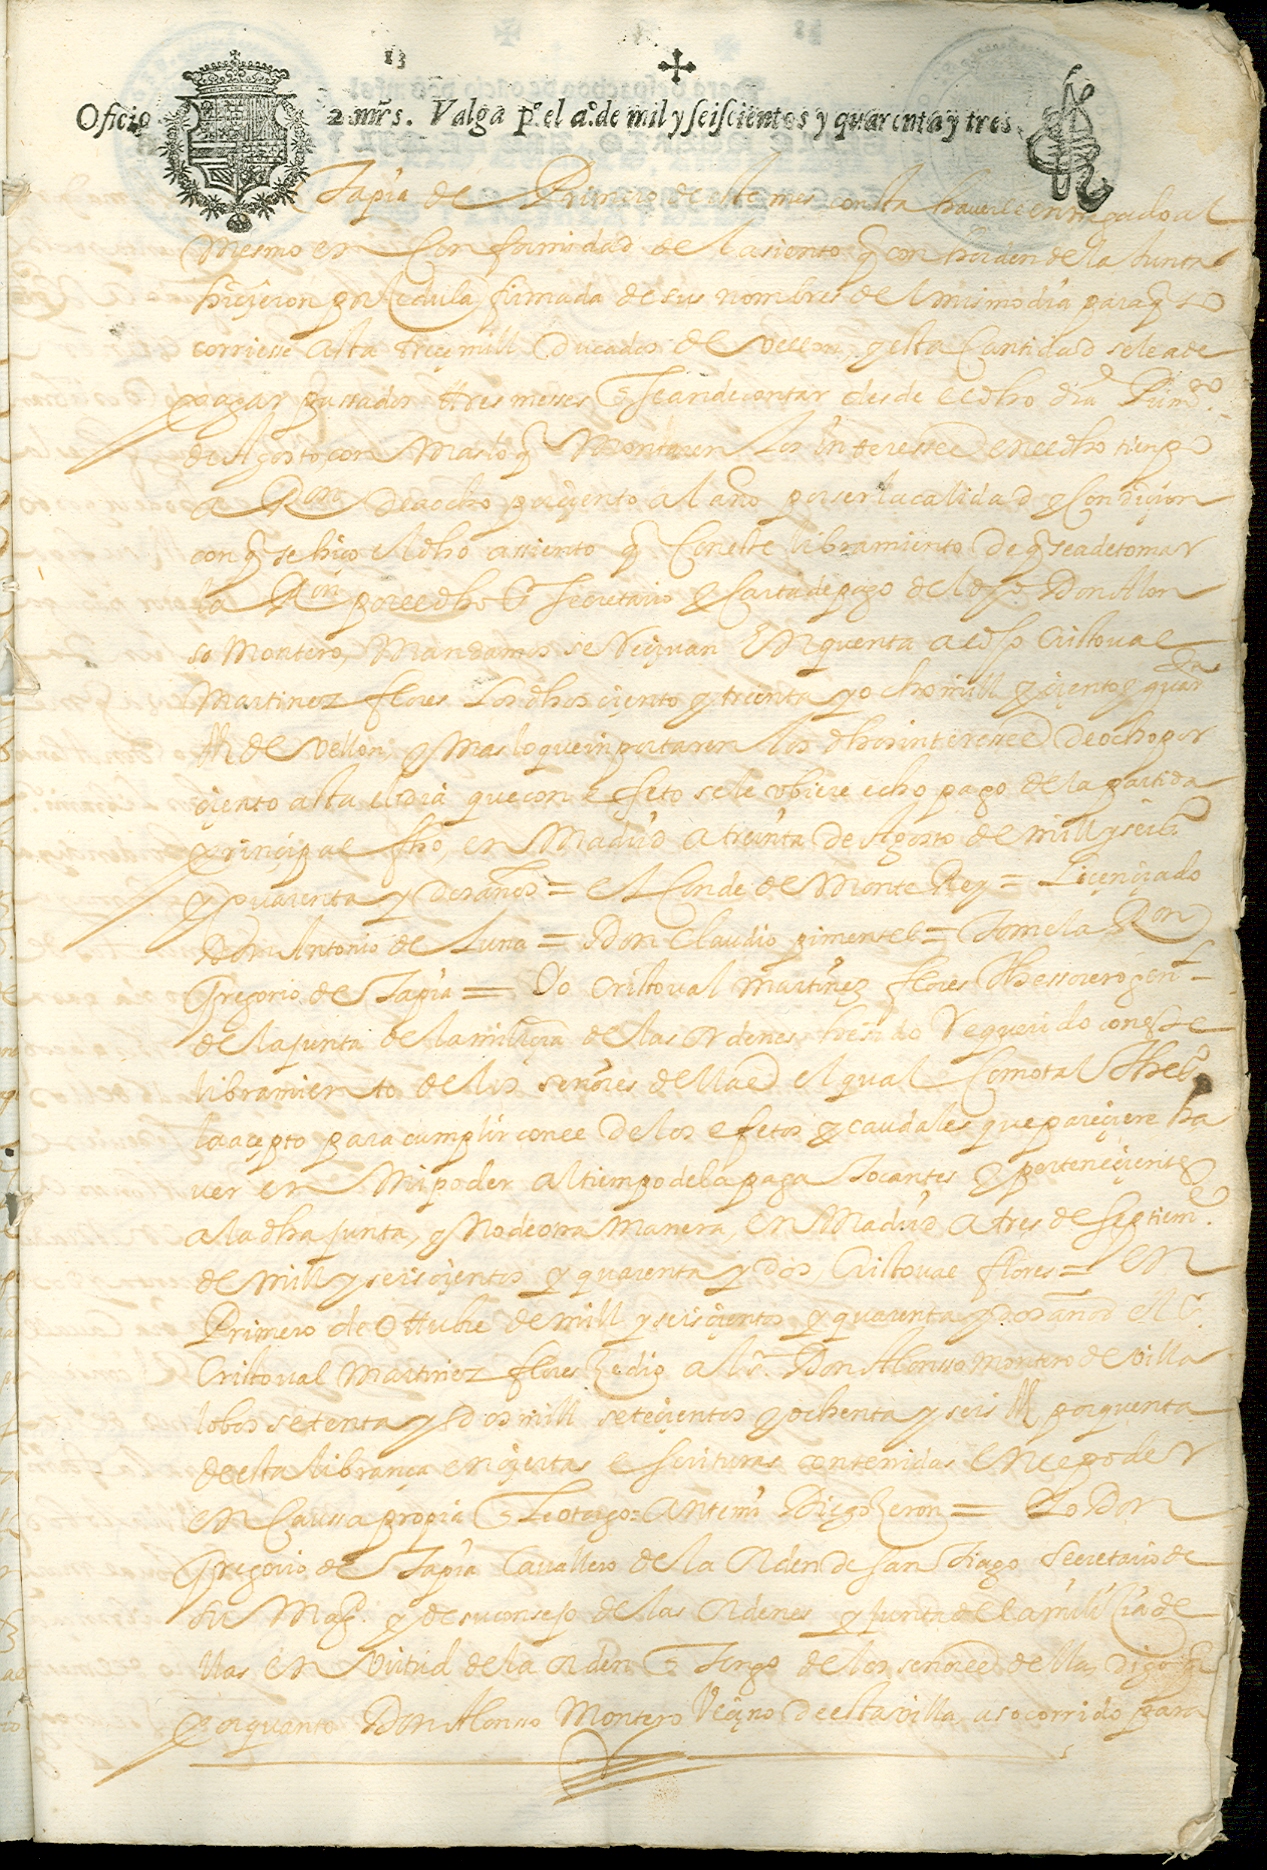 13
Oficio 2 mrs. Valga pº el aº de mil y seiscientos y quarenta y tres
Tapia de Primero deste mes consta haverse entregado al
Mesmo en Conformidad del asiento q con horden de la Junta
hicieron por Cedula firmada de sus nombres del mismo dia para q se
corriesse asta trece mill Ducados de vellon, y esta Cantidad se le a de
pagar passados tres messes q se an de contar desde el dho dia Primº
de Agosto con Mas lo q Montaren los Interesses en el dho tiempo
a Raçon de ocho por çiento al año por ser la calidad y Condiçion
con q se hiço el dho assiento q Con este libramiento de q se a de tomar
la Raçon por el dho sº secretario y Carta de pago del dho sº Don Alon
so Montero, Mandamos se Reçivan En quenta al dho sº Cristoval
Martinez flores Los dhos çiento y treinta y ocho mill y çiento y quarta
Rs de vellon, y mas lo que inportaren los dhos interesses de ocho por
çiento asta el dia que con efeto se le ubiere echo pago de la partida
prinçipal fho, en Madrid a treinta de Agosto de mill y seisºs
y quarenta y dos años = el Conde de Monte Rey = Liçençiado
Don Antonio de Luna = Don Claudio pimentel = Tome la Raçon
Gregorio de Tapia = Yo Cristoval Martinez flores thessorero genl
de la Junta de la miliçia de las ordenes he sido Requerido con este
libramiento de los señores della el qual Como tal thesº
lo açepto para cumplir con el de los efetos y caudales que pareçiere ha
ver en Mi poder al tiempo de la paga tocantes y perteneçientes
a la dha junta, y No de otra Manera, en Madrid a tres de septiemº
de mill y seisçientos y quarenta y dos, Cristoval flores = en
Primero de Ottubre de mill y seisçientos y quarenta y dos años el sº
Cristoval Martinez flores çedio al sº Don Alonsso Montero de villa
lobos setenta y dos mill seteçientos y ochenta y seis Rs por quenta
de esta librança en çiertas escrituras contenidas en el poder
en Caussa propia q Le otorgo = Ante mi Diego Çeron = Yo Don
Gregorio de Tapia Cavallero de la orden de san Tiago secretario de
su Magd. y de su consejo de las ordenes y junta de la miliçia de
llas en virtud de la orden q Tengo de los señores della, digo q
por quanto Don Alonso Montero Veçino de esta villa, a socorrido para